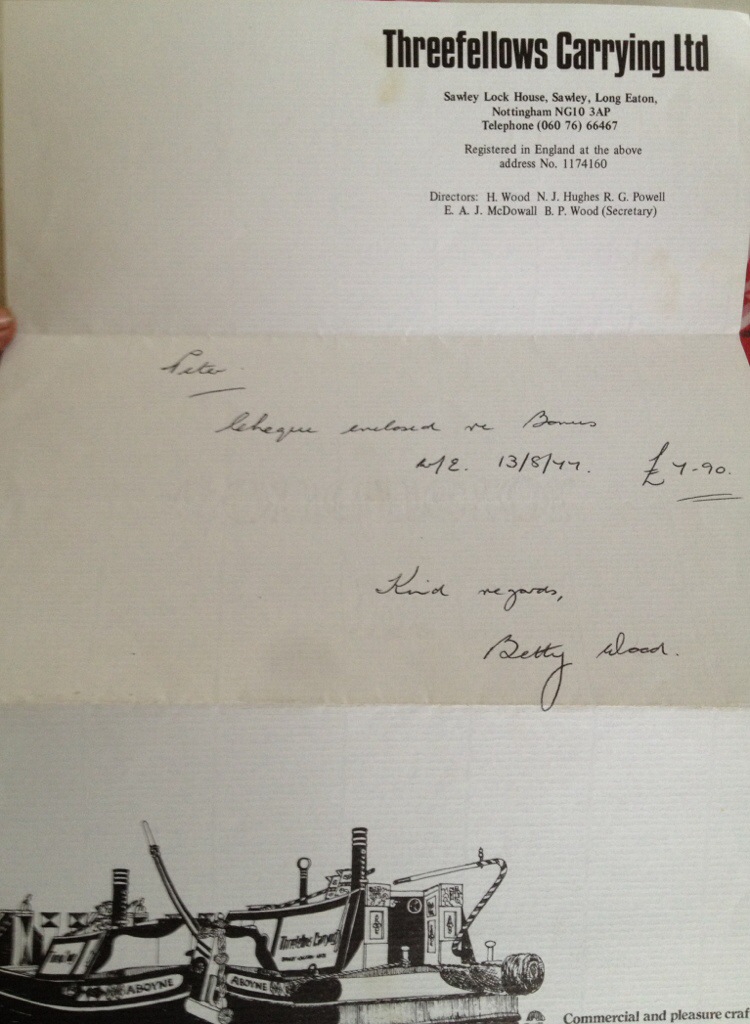 Threefellows Carrying Ltd
Sawley Lock House, Sawley, Long Eaton,
Nottingham NG10 3AP
Telephone (060 76) 66467
Registered in England at the above
address No. 1174160
Directors: H. Wood N. J. Hughes R. G. Powell
E. A. J. McDowall B. P. Wood (Secretary)
Peter
Cheque enclosed re Bonus
W/E. 13/8/77. £7-90.
Kind regards,
Betty Wood.
Threefellows Carrying
ABOYNE
ABOYNE
Commercial and pleasure craf